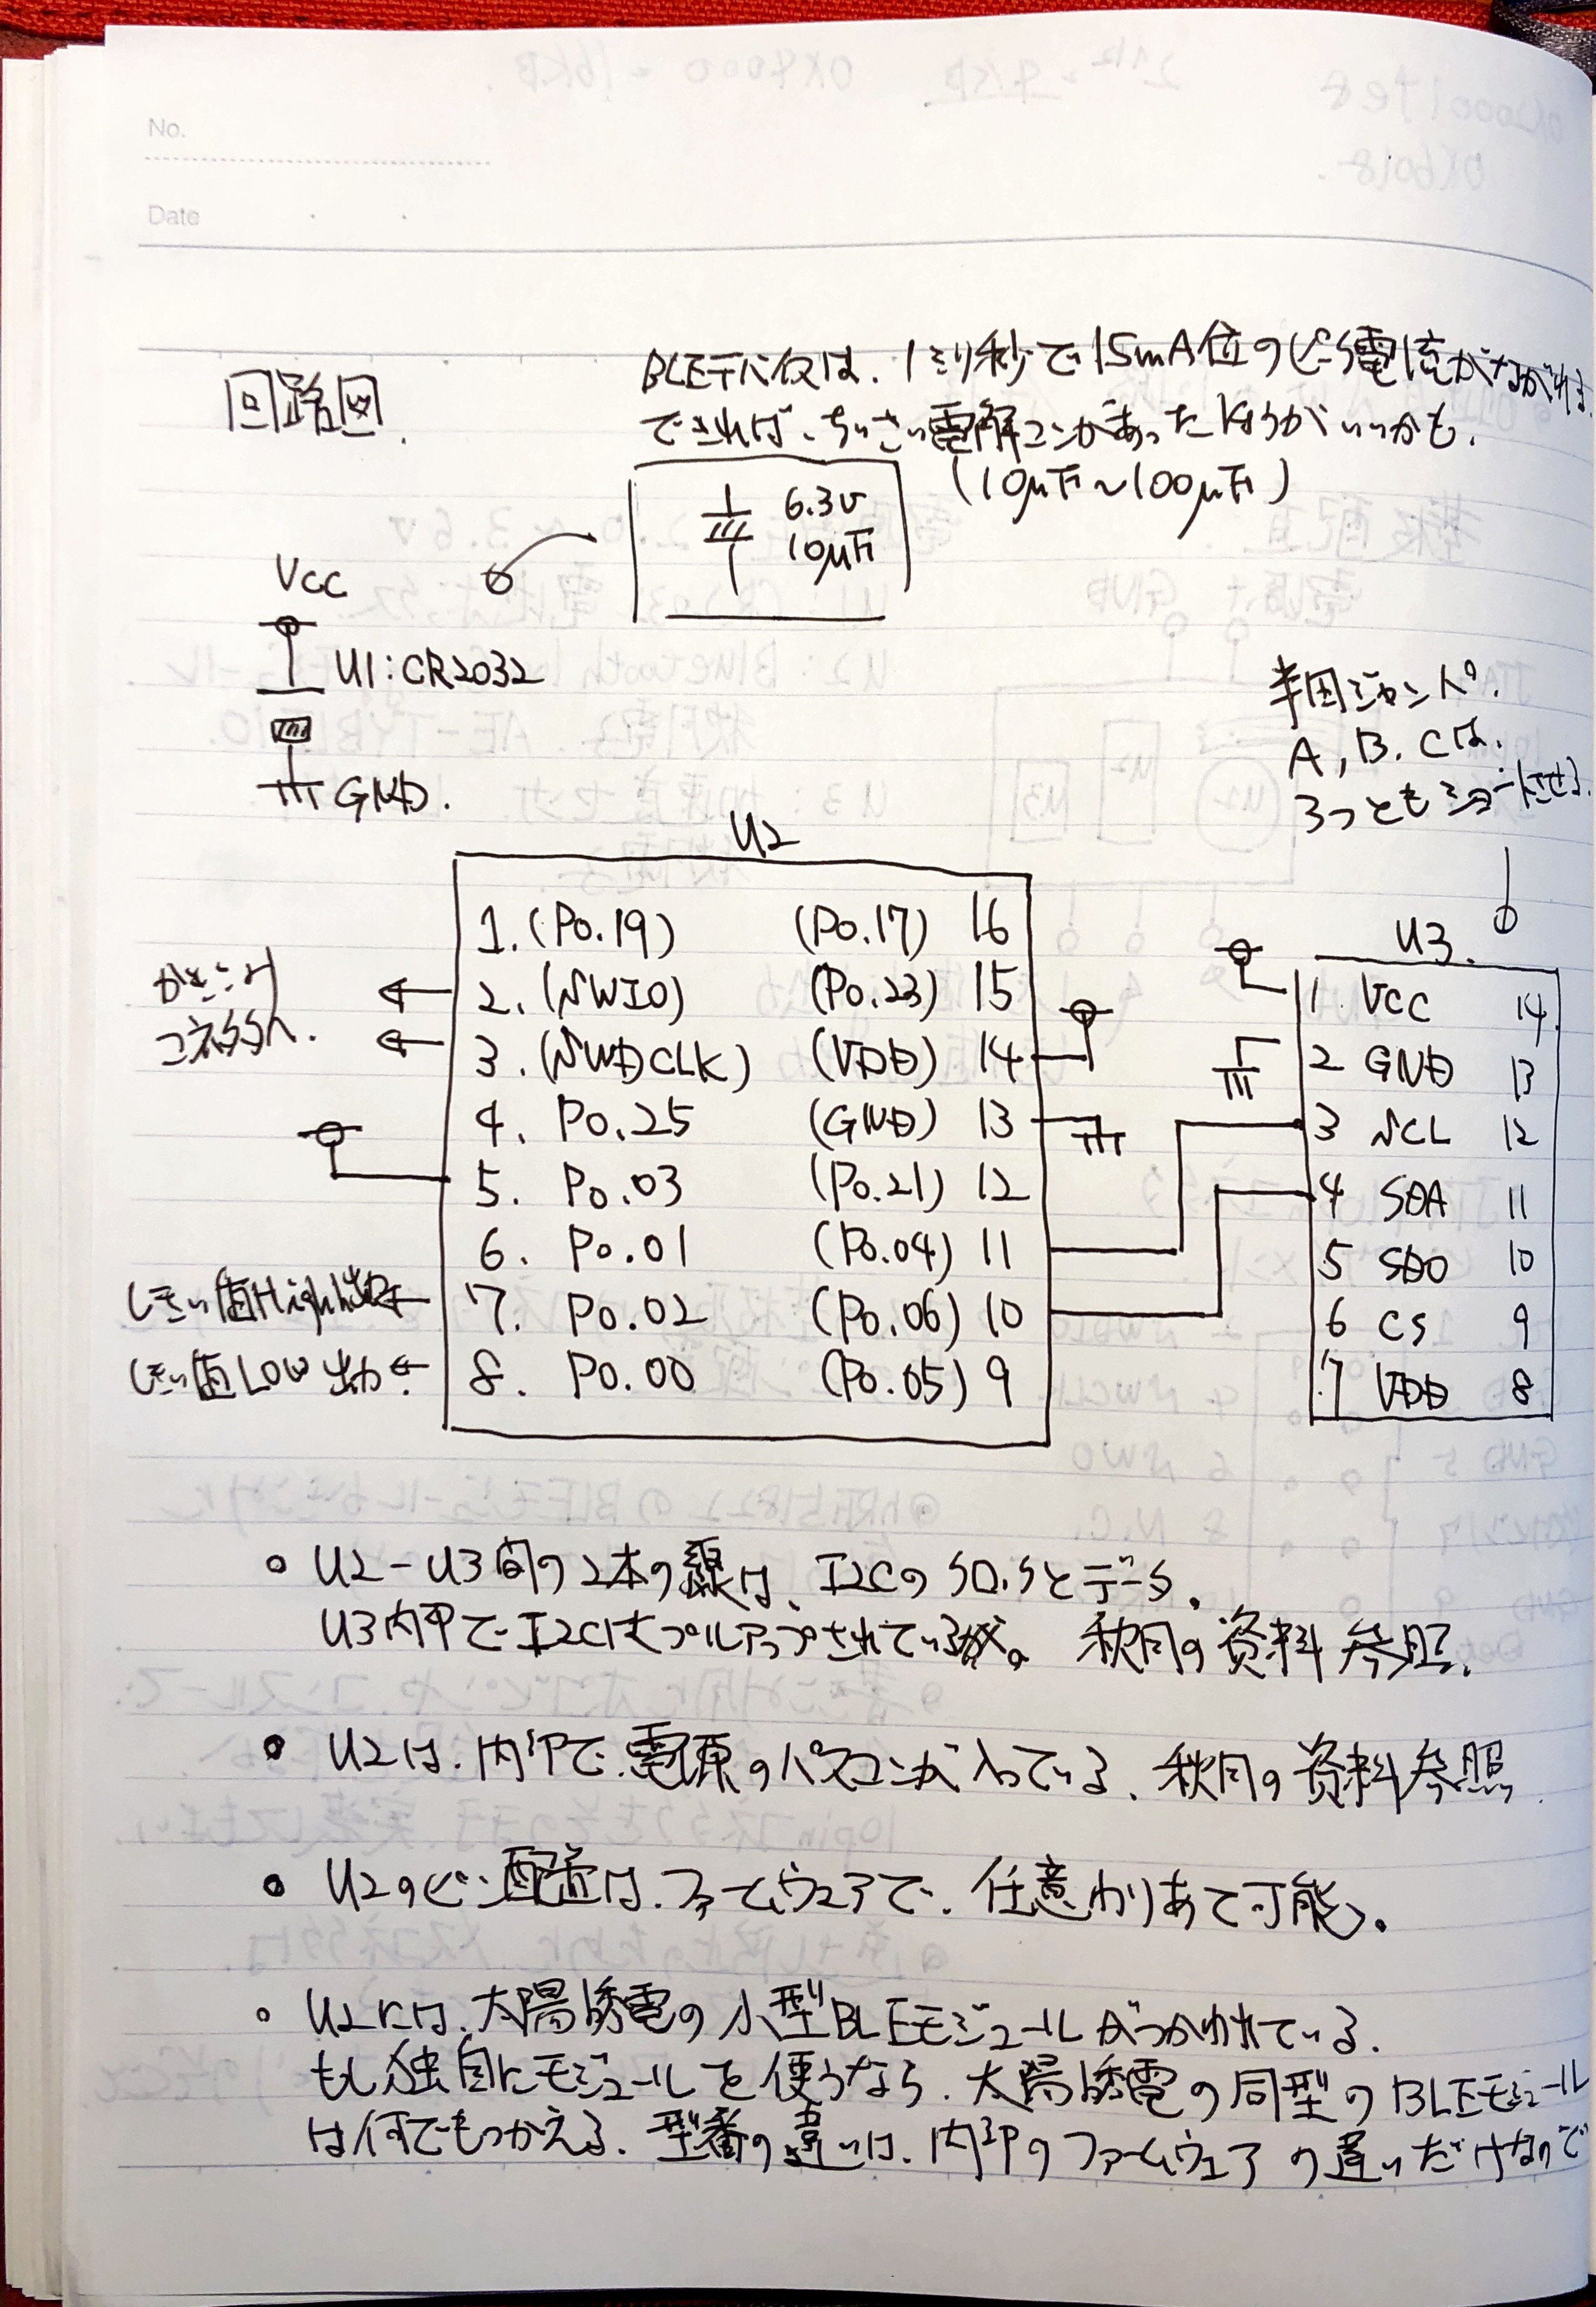 No.
Date
回路図.
BLEデバイスは、1ミリ秒で15mA位のピーク電流がながれる
できれば、ちいさい電解コンがあったほうがいいかも.
(10μF~100μF)
6.3v
10μF
VCC
U1:CR2032
GND.
半田ジャンパ.
A, B. Cは.
3つともショートさせる.
U2
1. (P0.19) (P0.17) 16
2. (SWIO) (P0.23) 15
3. (SWDCLK) (VDD) 14
4. P0.25 (GND) 13
5. P0.03 (P0.21) 12
6. P0.01 (P0.04) 11
7. P0.02 (P0.06) 10
8. P0.00 (P0.05) 9
かきこみ
コネクタへ.
しきい値High出力
しきい値LOW出力
U3.
1 VCC 14
2 GND 13
3 SCL 12
4 SDA 11
5 SDO 10
6 CS 9
7 VDD 8
U2-U3間の2本の線は、I2Cのクロックとデータ.
U3内部でI2Cはプルアップされている。 秋月の資料参照.
U2は.内部で.電源のパスコンが入っている. 秋月の資料参照.
U2のピン配置は.ファームウェアで.任意わりあて可能.
U2には.太陽誘電の小型BLEモジュールがつかわれている.
もし独自にモジュールを使うなら.太陽誘電の同型のBLEモジュール
は何でもつかえる.型番の違いは.内部のファームウェアの違いだけなので